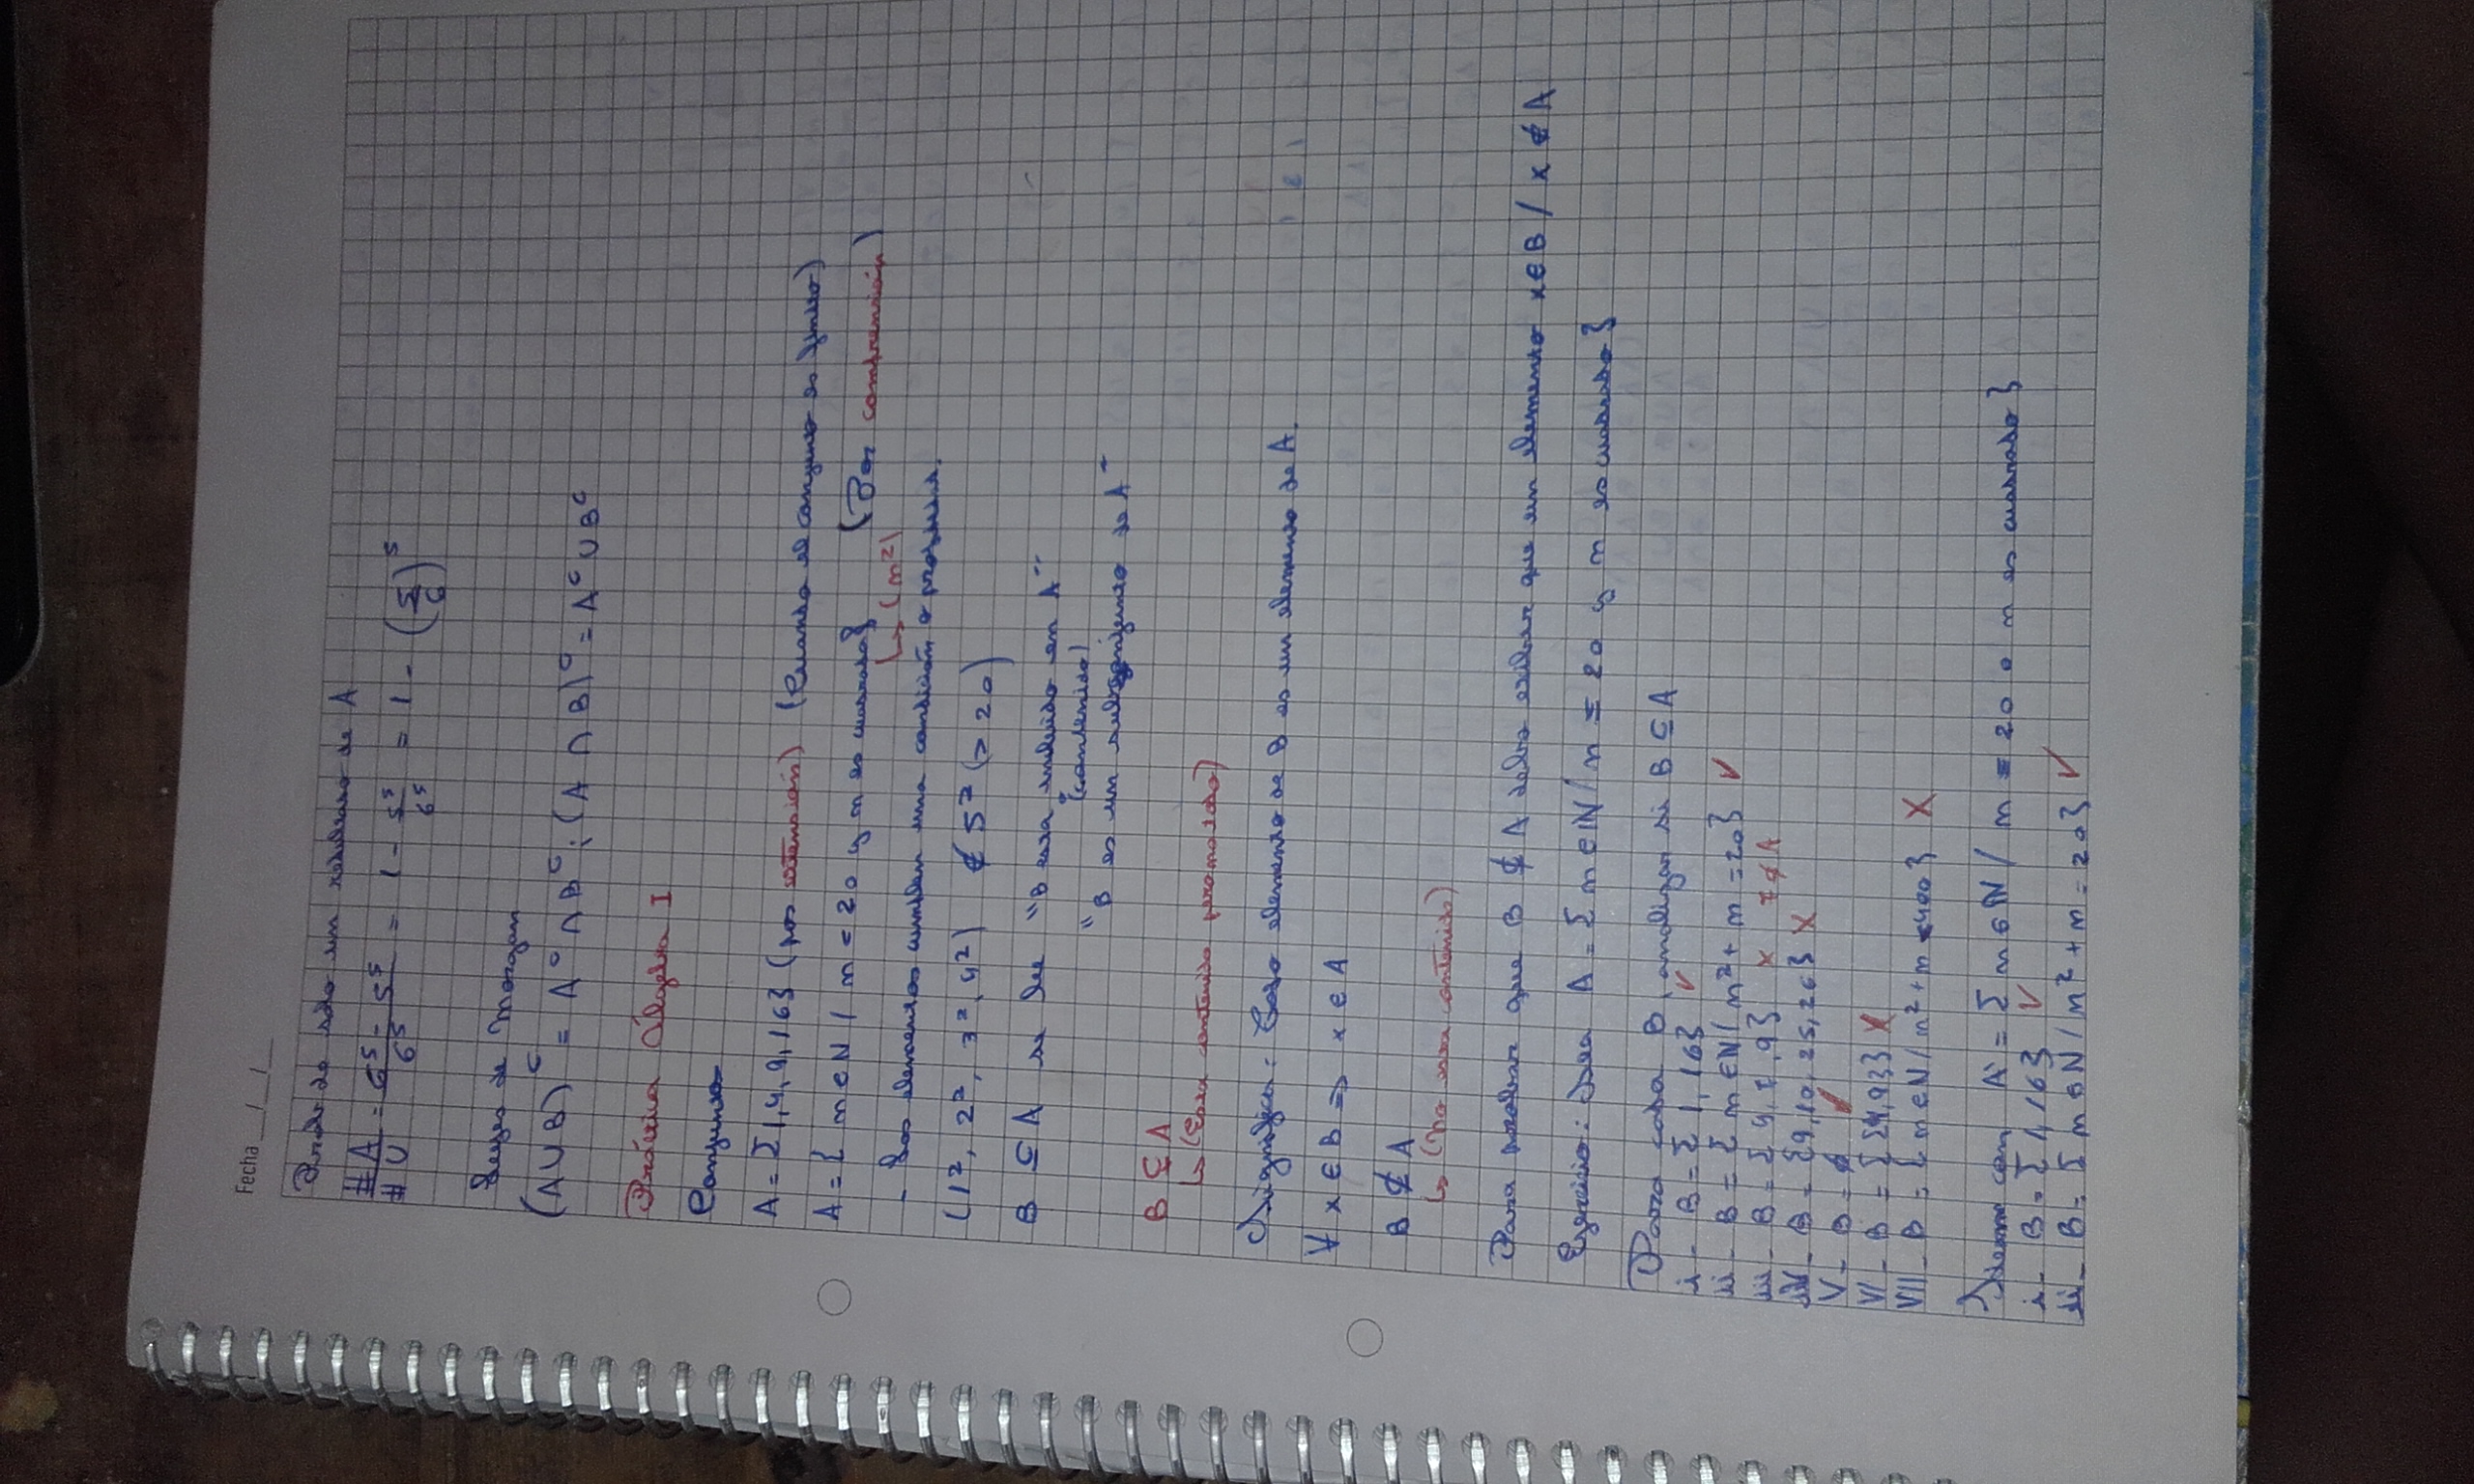 Fecha __/__/__
Prob de solo un resultado de A
#A/#U = (6⁵ - 5⁵)/6⁵ = 1 - 5⁵/6⁵ = 1 - (5/6)⁵
Leyes de Morgan
(A∪B)ᶜ = Aᶜ∩Bᶜ ; (A ∩ B)ᶜ = Aᶜ∪Bᶜ
Práctica Álgebra I
Conjunto
A = {1,4,9,16} (por extensión) (Cuando el conjunto es finito)
A = { n ∈ N / n ≤ 20 y n es cuadrado} (Por comprensión)
↳ (n²)
- Los elementos cumplen una condición o propiedad.
(1², 2², 3², 4²) ∉ 5² (> 20)
B ⊆ A se lee "B esta incluido en A"
(contenido)
"B es un subconjunto de A"
B ⊊ A
↳ (Esta contenido pero no todo)
Significa: Todo elemento de B es un elemento de A.
∀ x ∈ B ⇒ x ∈ A
B ⊄ A
↳ (No esta contenido)
Para probar que B ⊄ A debo exibir que un elemento x∈B / x ∉ A
Ejercicio: Sea A = {n ∈ IN / n ≤ 20 y n es cuadrado}
Para cada B, analizar si B ⊆ A
i - B = {1, 16} ✓
ii - B = {n ∈ N / n² + n = 20} ✓
iii - B = {4, 7, 9} x 7 ∉ A
IV - B = {9, 10, 25, 26} X
V - B = ∅ ✓
VI - B = {{4,9}} X
VII - B = {n ∈ N / n² + n < 400} X
Idem con A' = {n ∈ N / n ≤ 20 o n es cuadrado}
i - B = {1, 16} ✓
ii - B = {n ∈ N / n² + n = 20} ✓